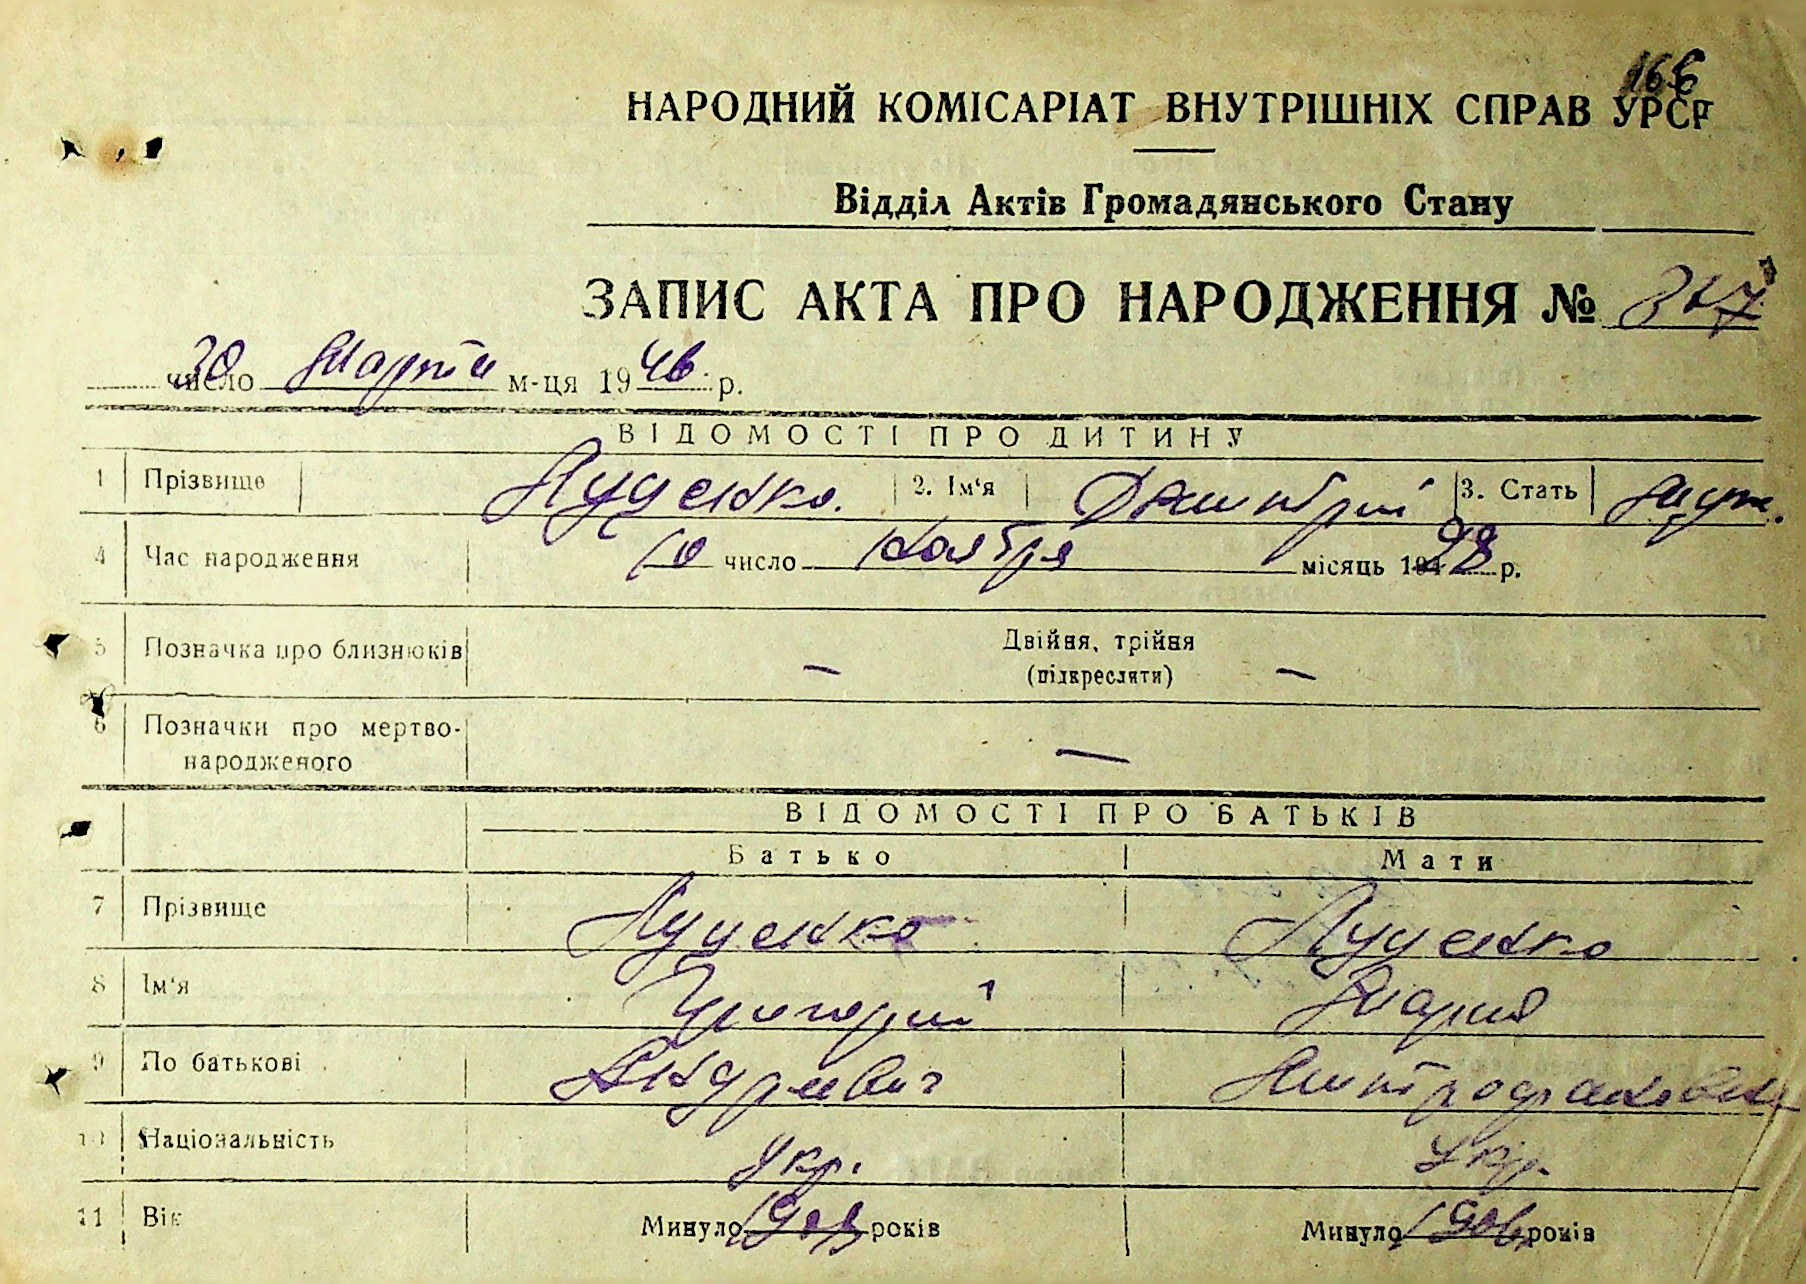 166
НАРОДНИЙ КОМІСАРІАТ ВНУТРІШНІХ СПРАВ УРСР
Відділ Актів Громадянського Стану
ЗАПИС АКТА ПРО НАРОДЖЕННЯ №
30 число Марта м-ця 1946 р.
ВІДОМОСТІ ПРО ДИТИНУ
1 Прізвище Луценко. 2. Ім'я Дмитрий 3. Стать муж.
4 Час народження 10 число Ноября місяць р.
5 Позначка про близнюків — Двійня, трійня —
(підкреслити)
6 Позначки про мертво-
народженого —
ВІДОМОСТІ ПРО БАТЬКІВ
Батько Мати
7 Прізвище Луценко Луценко
8 Ім'я Григорий Мария
9 По батькові Андреевич Митрофановна
10 Національність Укр. Укр.
11 Вік Минуло років Минуло 1906 років